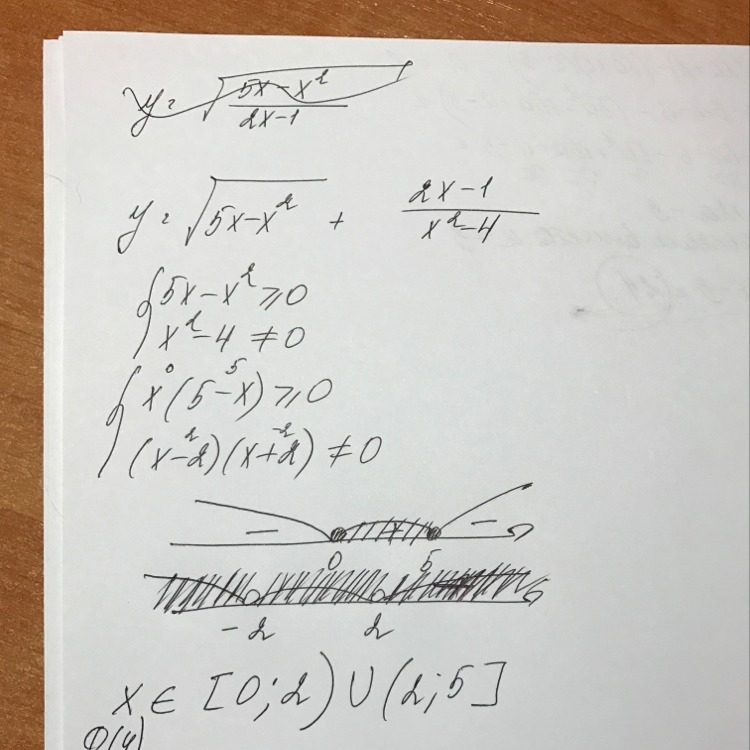 y = √(5x-x²)/(2x-1)
y = √(5x-x²) + (2x-1)/(x²-4)
{ 5x-x² ⩾ 0
x²-4 ≠ 0
0 5
{ x(5-x) ⩾ 0
2 -2
(x-2)(x+2) ≠ 0
- + -
0 5
-2 2
x ∈ [0;2) ∪ (2;5]